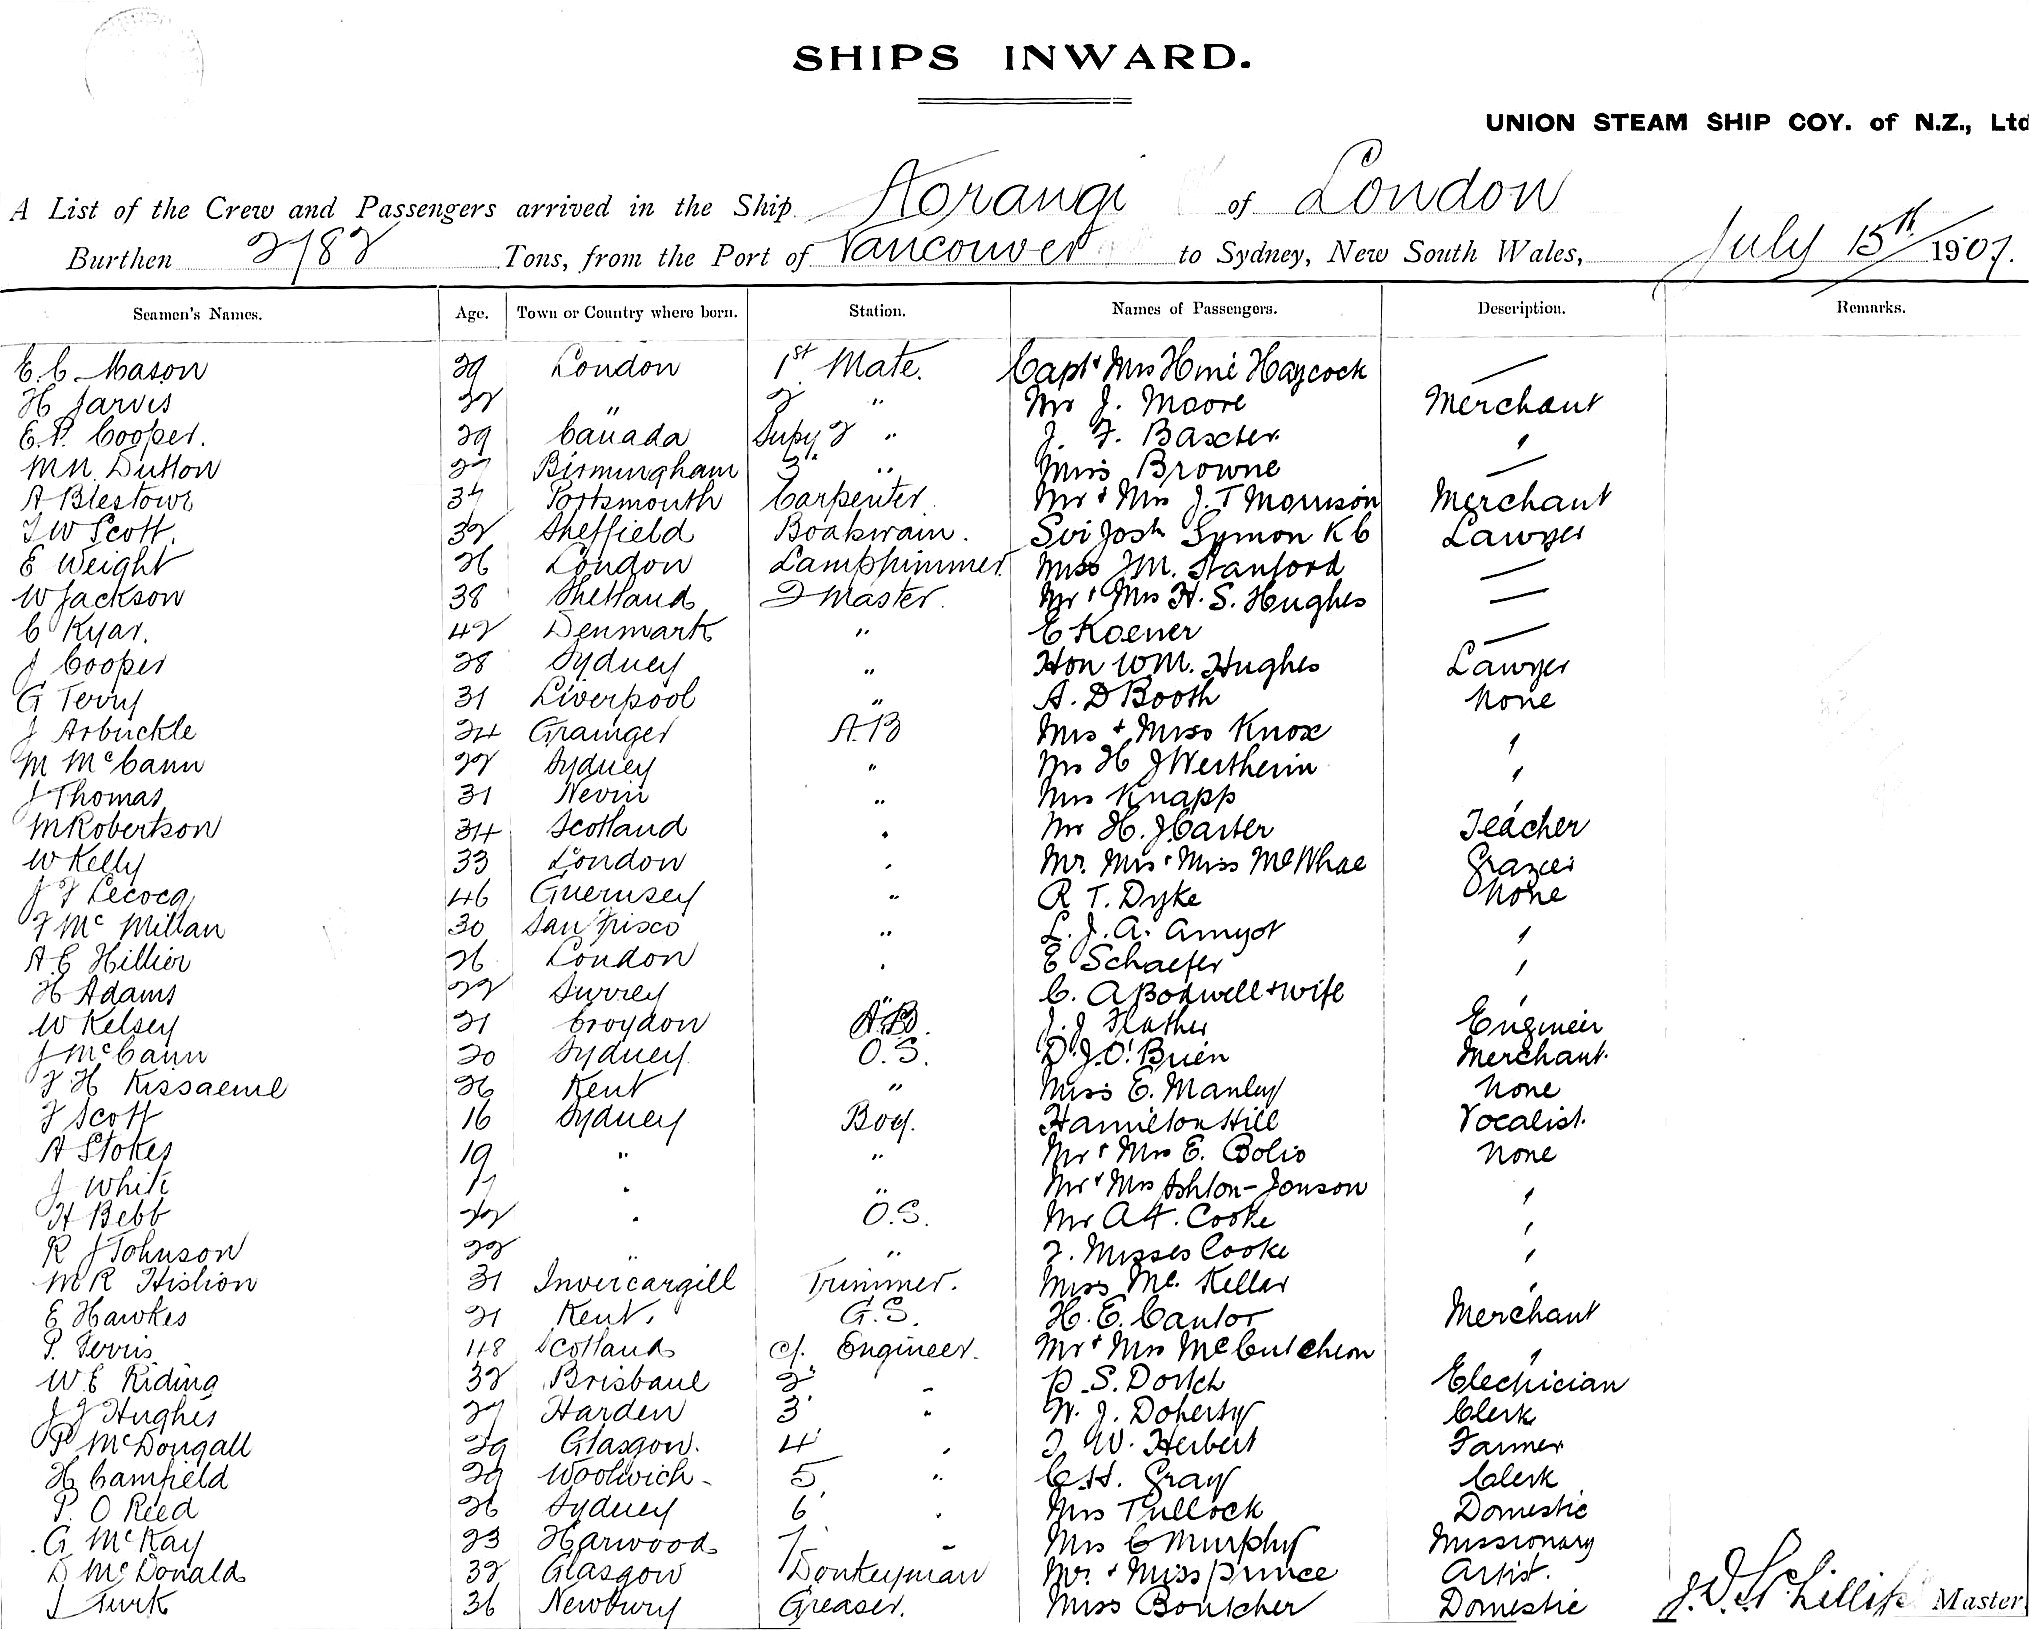 SHIPS INWARD.
UNION STEAM SHIP COY. of N.Z., Ltd
A List of the Crew and Passengers arrived in the Ship Aorangi of London
Burthen 2782 Tons, from the Port of Vancouver to Sydney, New South Wales, July 15th 1907.
Seamen's Names. Age. Town or Country where born. Station. Names of Passengers. Description. Remarks.
E. C. Mason 29 London 1st Mate. Capt & Mrs Haycock —
H Jarvis 32 " 2 " Mr J. Moore Merchant
E. P. Cooper. 29 Canada Supy 2 " J. F. Baxter "
M N Dutton 27 Birmingham 3 " Miss Browne —
A 37 Portsmouth Carpenter Mr & Mrs J. T Morrison Merchant
F W Scott. 32 Sheffield Boatswain. Sir Josh Symon K C Lawyer
E Weight 26 London Lamptrimmer Miss J M. Stanford —
W Jackson 38 Shetland Q Master. Mr & Mrs H. S. Hughes —
C Kyar. 42 Denmark " E Koener —
J Cooper 28 Sydney " Hon W M. Hughes Lawyer
G Terry 31 Liverpool " A. D Booth None
J Arbuckle 24 Granger A B Mrs & Miss Knox "
M McCann 22 Sydney " Mrs H J Wertheim "
J Thomas 31 Nevin " Mrs Knapp "
M Robertson 34 Scotland " Mr H. J Harter Teacher
W Kelly 33 London " Mr. Mrs & Miss McWhae Grazier
J F Lecocq 46 Guernsey " R T. Dyke None
F McMillan 30 San Frisco " L. J. A. Amyot "
A C Hillier 26 London " E Schaefer "
H Adams 22 Surrey " C. A Bodwell & wife "
W Kelsey 21 Croydon A.B. J. J Flather Engineer
J McCann 20 Sydney O.S. D. J. O'Brien Merchant.
F H 26 Kent " Miss E. Manley None
F Scott 16 Sydney Boy. Hamilton Hill Vocalist.
A Stokes 19 " " Mr & Mrs E. Bolio None
J White 17 " " Mr & Mrs Ashton-Jonson "
H Bebb 22 " O.S. Mr A F. Cooke "
R J Johnson 22 " " 2. Misses Cooke "
M R Hislion 31 Invercargill Trimmer. Miss Mc Kellar "
E Hawkes 21 Kent. G.S. H. E. Cantor Merchant
P. Ferris 48 Scotland cf. Engineer. Mr & Mrs McCutcheon "
W E Riding 32 Brisbane 2 " P. S. Dortch Electrician
J J Hughes 27 Harden 3 " W. J. Doherty Clerk
P McDougall 29 Glasgow. 4 " J. W. Herbert Farmer
H Camfield 29 Woolwich 5 " C H. Gray Clerk
P. O Reed 26 Sydney 6 " Mrs Tullock Domestic
G McKay 23 Harwood 7 " Mrs C Murphy Missionary
D McDonald 32 Glasgow Donkeyman Mr. & Miss Prince Artist.
J Turk 36 Newbury Greaser. Miss Boutcher Domestic
Master